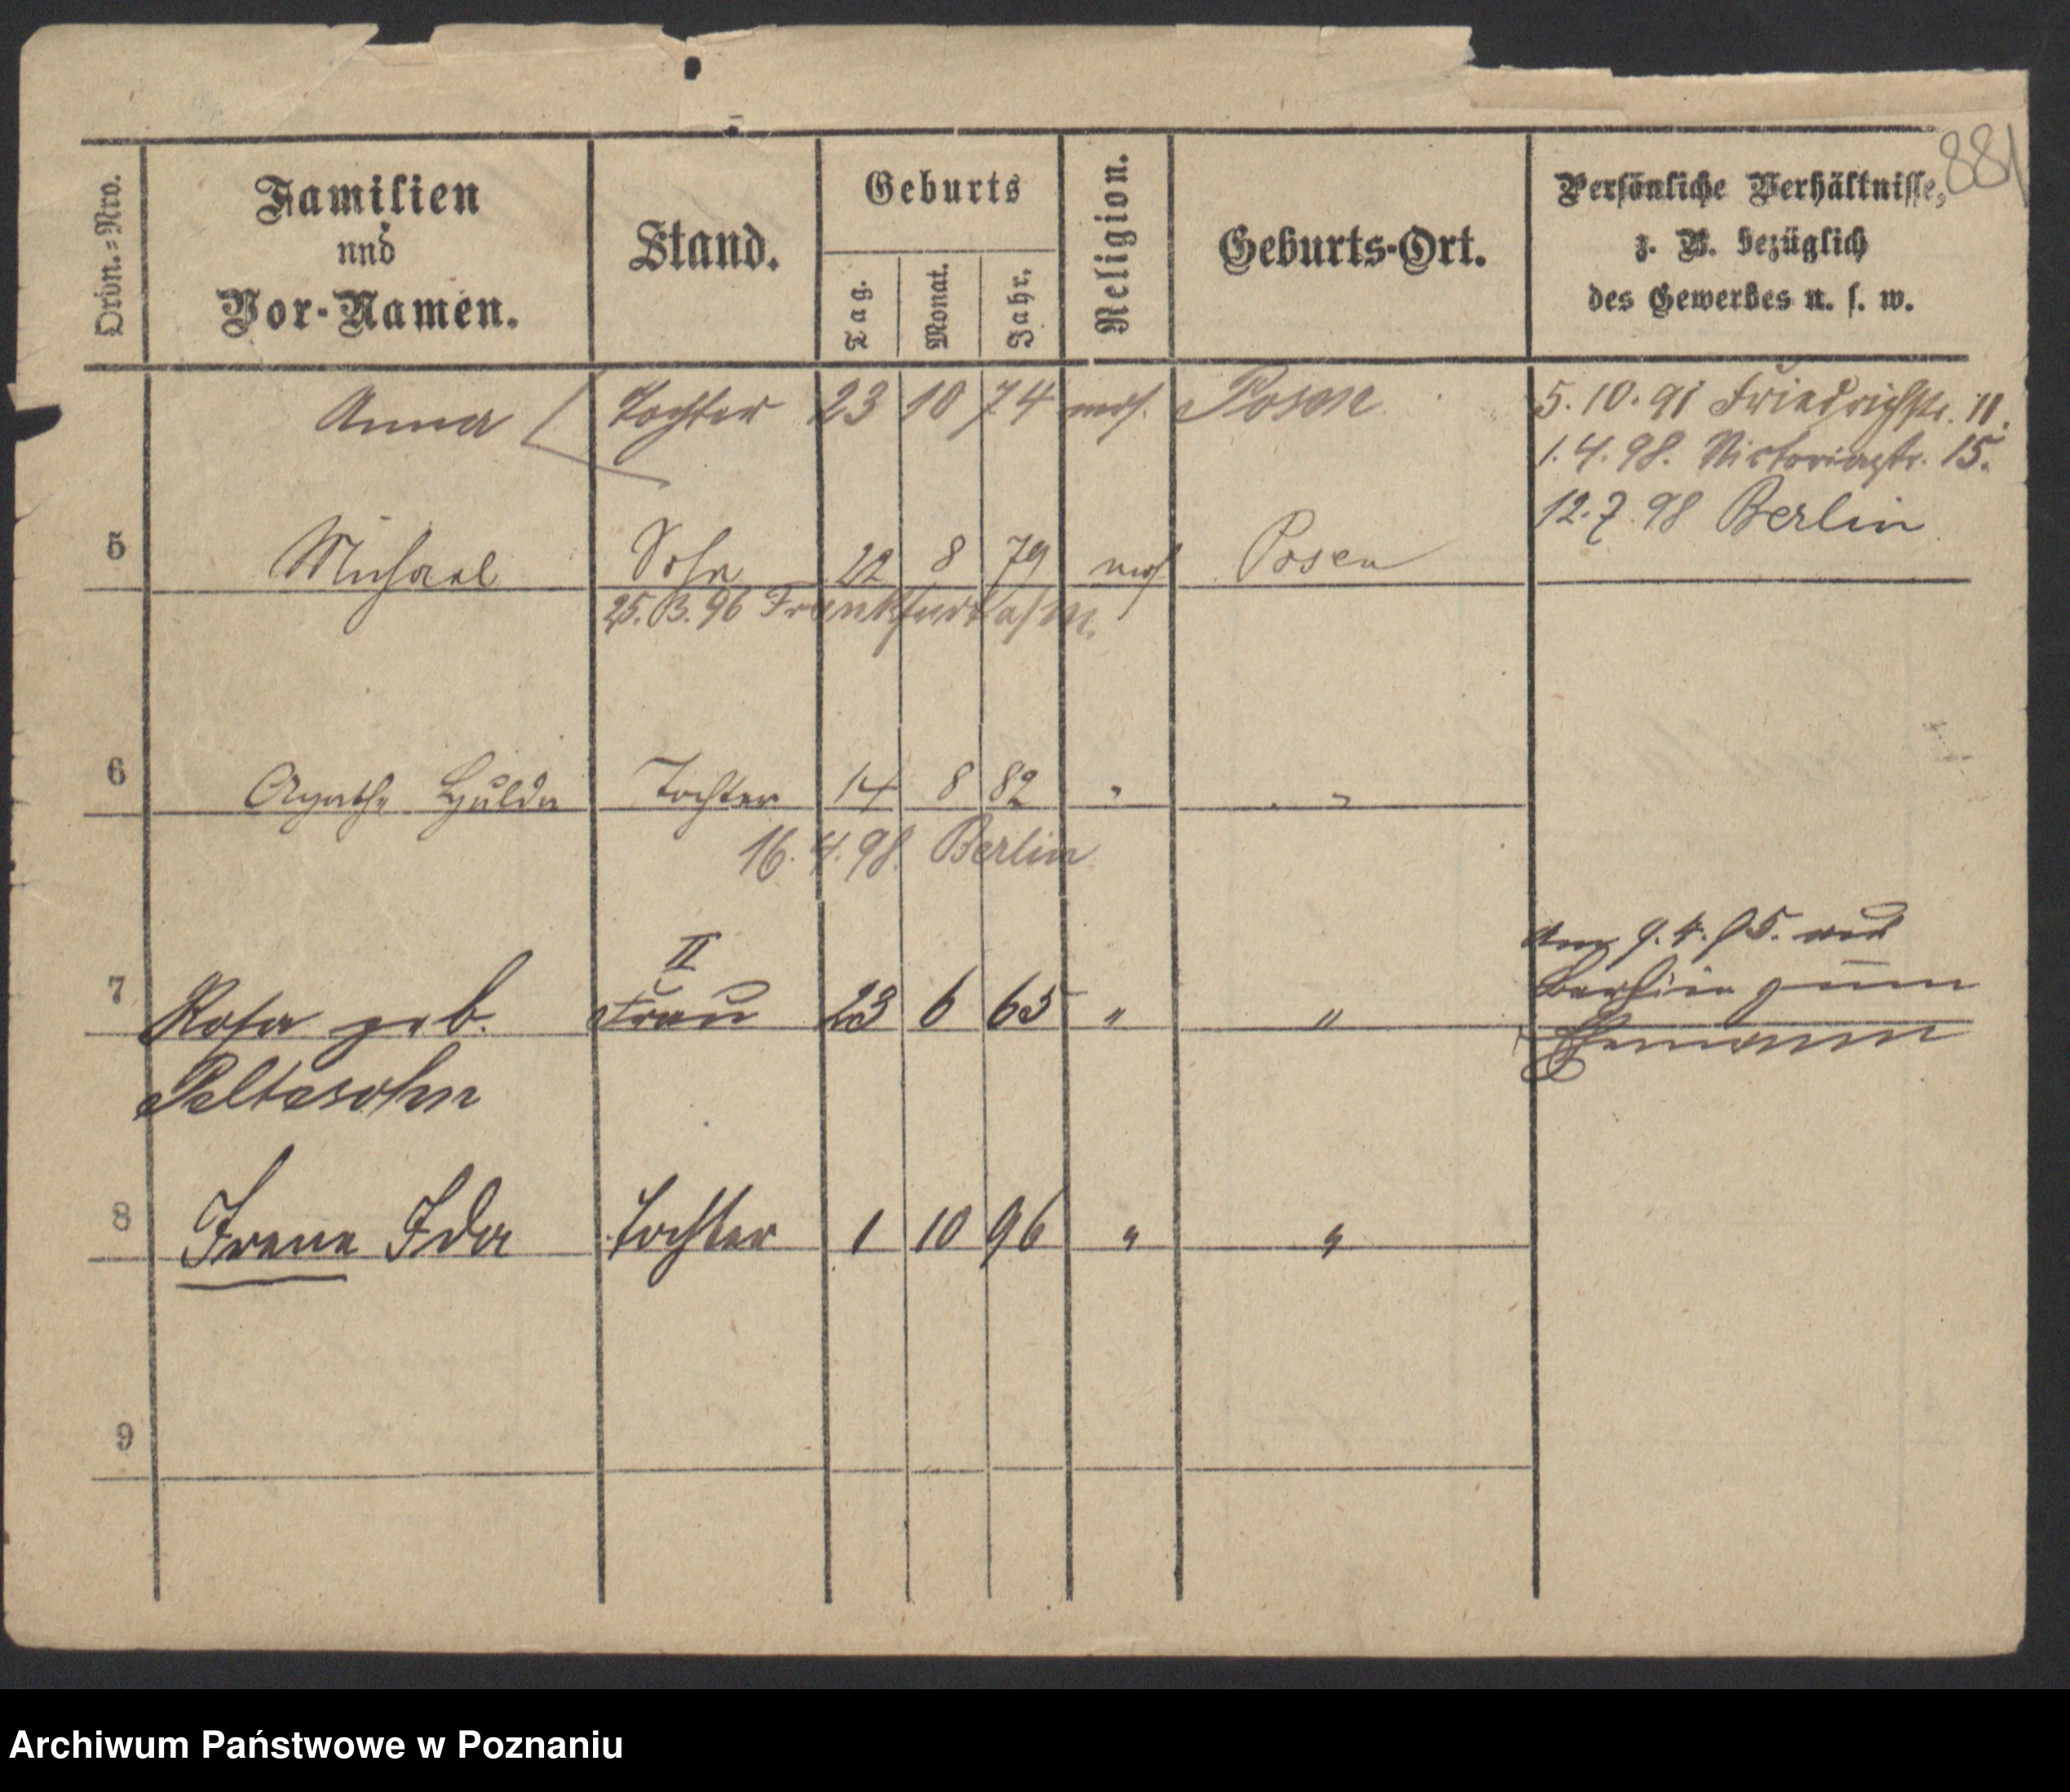 881
Ordn.=Nro.
Familien
und
Vor-Namen.
Stand.
Geburts
Tag.
Monat.
Jahr.
Religion.
Geburts-Ort.
Persönliche Verhältnisse,
z. B. bezüglich
des Gewerbes u. s. w.
Anna Tochter 23 10 74 mos. Posen
5.10.91 Friedrichstr. 11.
1.4.98. Victoriastr. 15.
12.7.98 Berlin
5 Michael Sohn 22 8 79 mos Posen
25.3.96 Frankfurt a/M.
6 Agathe Hulda Tochter 14 8 82 " "
16.4.98. Berlin
7 Rosa geb. II Frau 23 6 65 " "
Peltesohn
am 9.4.95. aus
Berlin zum
Ehemann
8 Irene Ida Tochter 1 10 96 " "
9
Archiwum Państwowe w Poznaniu